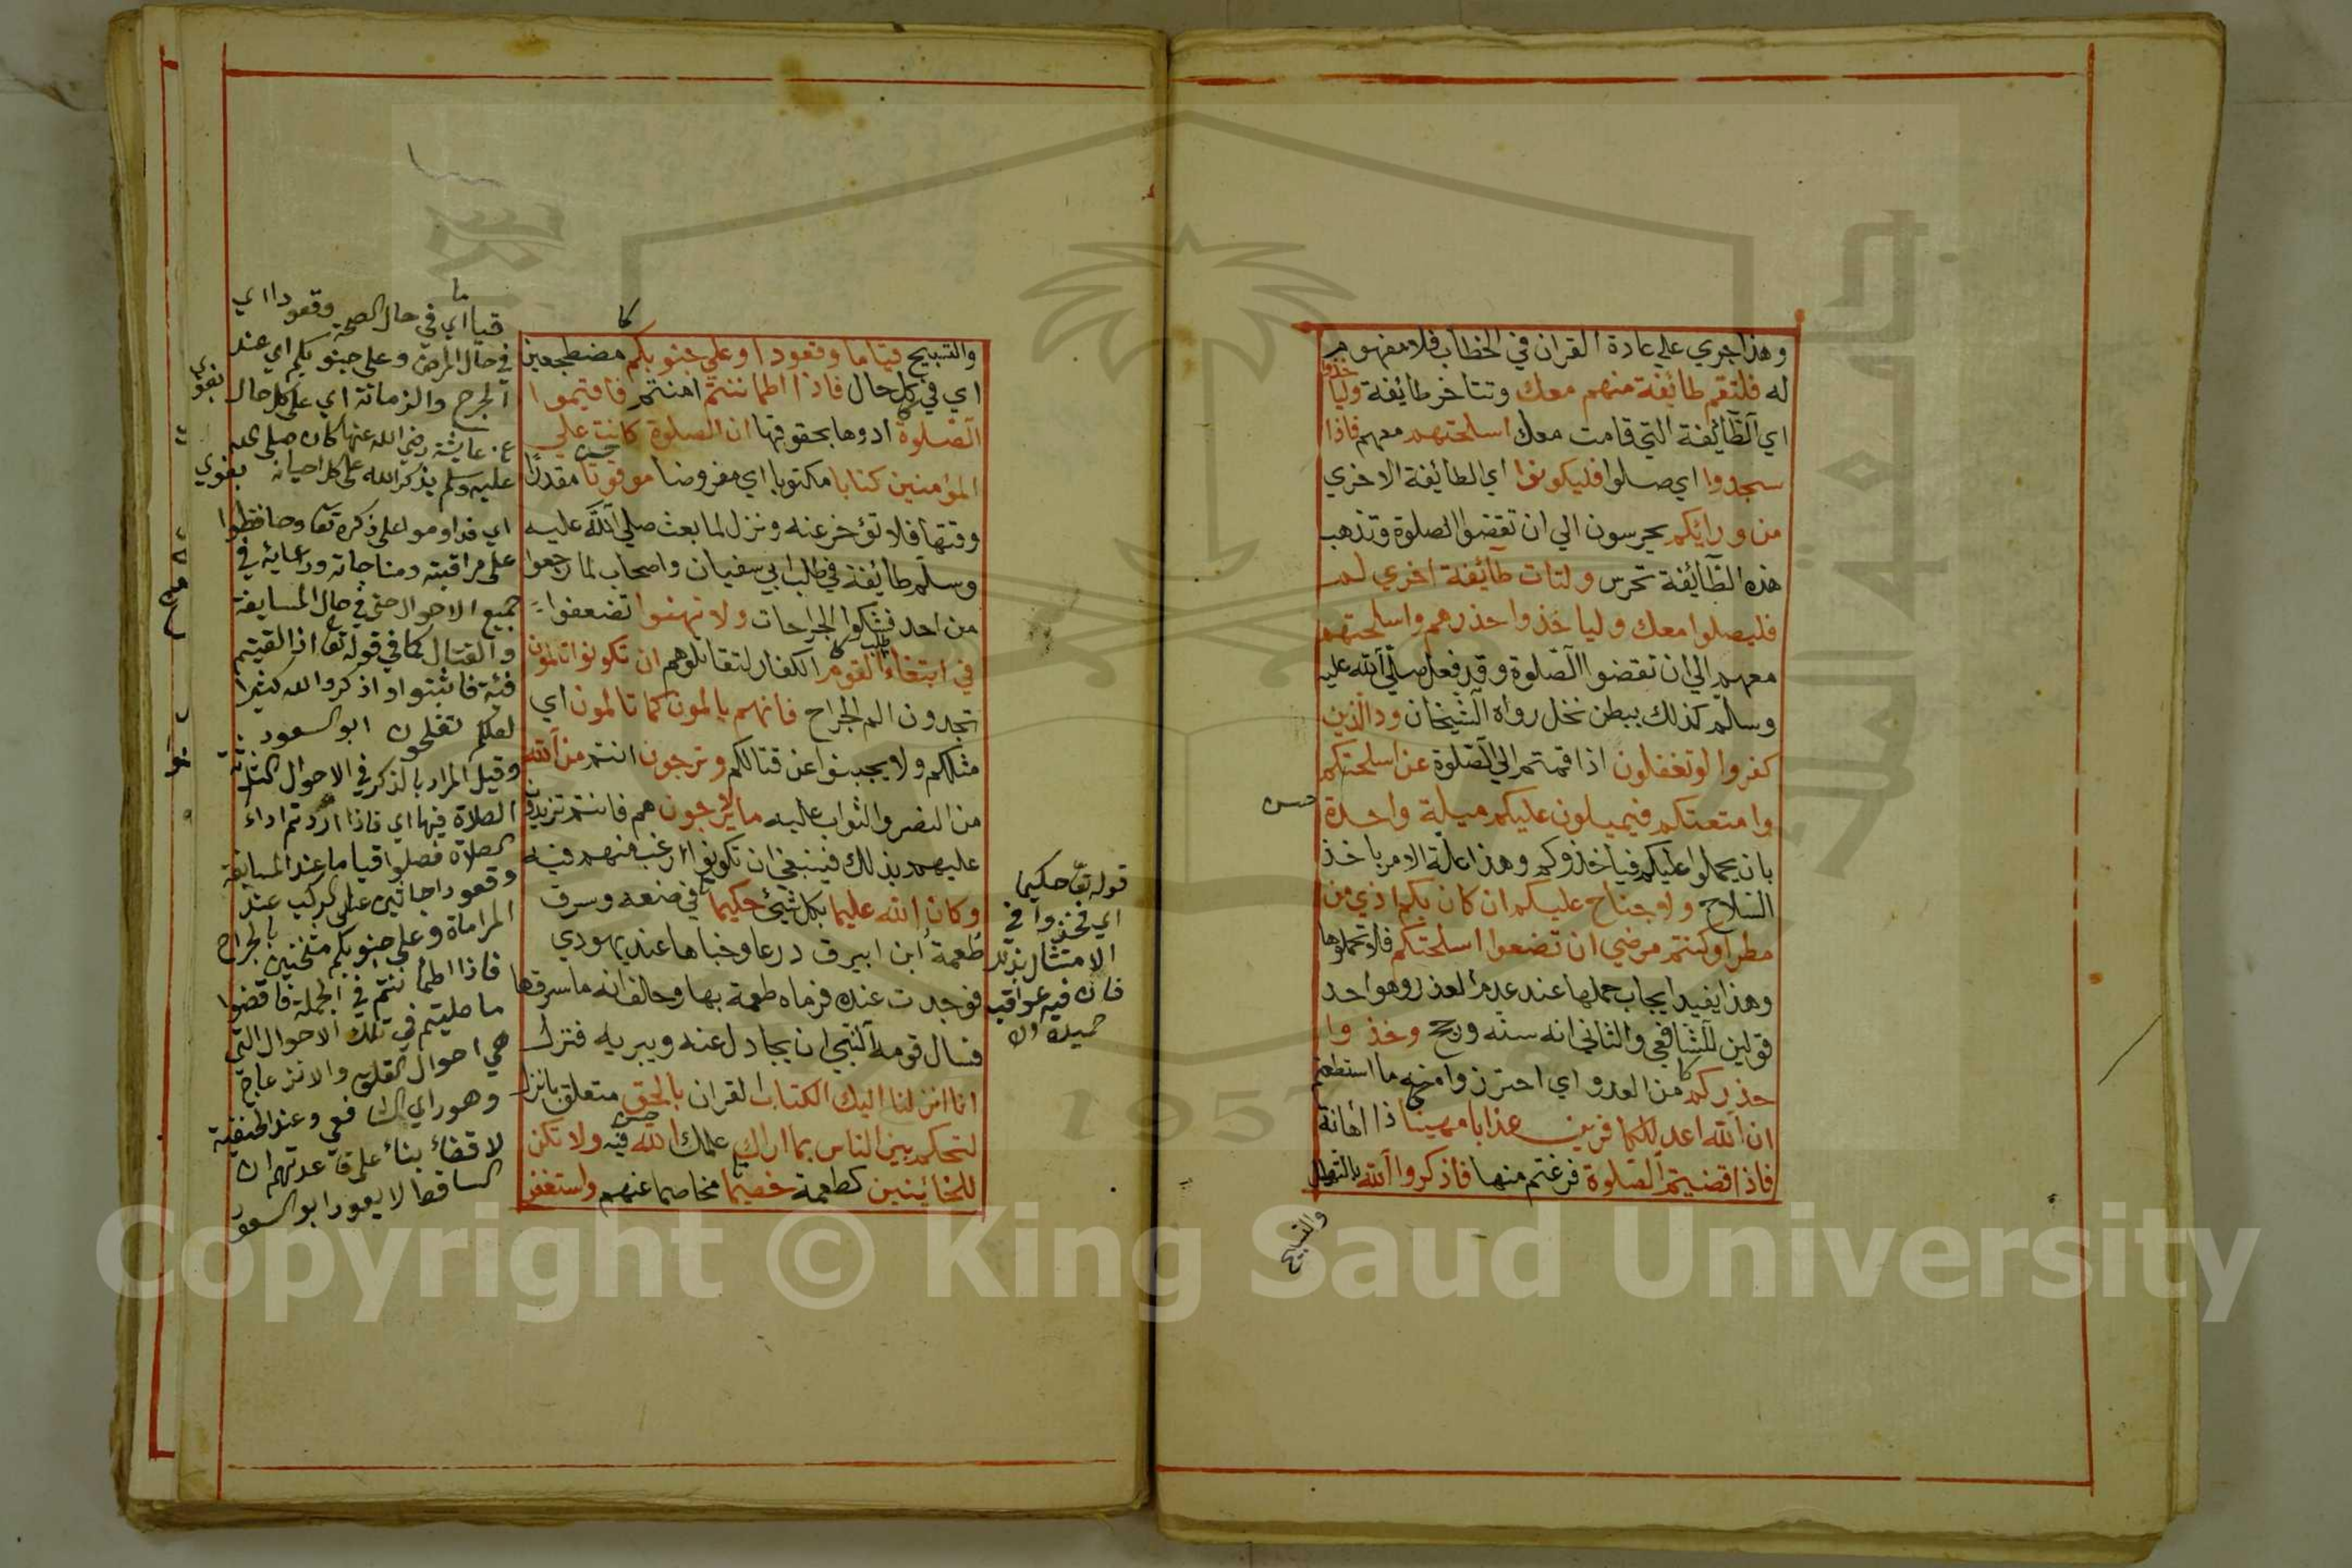 وهذا جري علي عادة القران في الخطاب فلا مفهوم
له فلتقم طائيفة منهم معك وتتاخر طائيفة وليا
خذوا
اي الطائيفة التي قامت معك اسلحتهم معهم فاذا
سجدوا اي صلوا فليكونوا اي الطائيفة الاخري
من ورايكم يحرسون الي ان تقضوا الصلوة وتذهب
هذه الطائيفة تحرس ولتات طائيفة اخري لم
فليصلوا معك ولياخذوا حذرهم واسلحتهم
معهم الي ان تقضوا الصلوة وقد فعل صلي الله عليه
وسلم كذلك ببطن نخل رواه الشيخان ود الذين
كفروا لو تغفلون اذا قمتم الي الصلوة عن اسلحتكم
وامتعتكم فيميلون عليكم ميلة واحدة
بان يحملوا عليكم فياخذوكم وهذا علة الامر باخذ
السلاح ولا جناح عليكم ان كان بكم اذي من
مطر او كنتم مرضي ان تضعوا اسلحتكم فلا تحملوها
وهذا يفيد ايجاب حملها عند عدم العذر وهو احد
قولين للشافعي والثاني انه سنة ورجح وخذوا
حذركم من العدو اي احترزوا منه ما استطعتم
ان الله اعد للكافرين عذابا مهينا ذا اهانة
فاذا قضيتم الصلوة فرغتم منها فاذكروا الله بالتهليل
والتسبيح
والتسبيح قياما وقعودا وعلي جنوبكم مضطجعين
اي في كل حال فاذا اطماننتم امنتم فاقيموا
الصلوة ادوها بحقوقها ان الصلوة كانت علي
المؤمنين كتابا مكتوبا اي مفروضا موقوتا مقدرا
وقتها فلا تؤخر عنه ونزل لما بعث صلي الله عليه
وسلم طائيفة في طلب ابي سفيان واصحاب لما رجعوا
من احد فشكوا الجراحات ولا تهنوا تضعفوا
في ابتغاء القوم الكفار لتقاتلوهم ان تكونوا تالمون
تجدون الم الجراح فانهم يالمون كما تالمون اي
مثلكم ولا يجبنوا عن قتالكم وترجون انتم من الله
من النصر والثواب عليه ما لا يرجون هم فانتم تزيدون
عليهم بذلك فينبغي ان تكونوا ارغب منهم فيه
وكان الله عليما بكل شيئ حكيما في صنعه وسرق
طعمة ابن ابيرق درعا وخباها عند يهودي
فوجدت عنده فرماه طعمة بها وحلف انه ما سرقها
فسال قومه النبي ان يجادل عنه ويبريه فنزل
انا انزلنا اليك الكتاب القران بالحق متعلق بانزل
لتحكم بين الناس بما اراك علمك الله فيه ولا تكن
للخائينين كطعمة خصيما مخاصما عنهم واستغفر
قوله تعا حكيما
اي فخذوا في
الامتثال بذلك
فان فيه عواقب
حميدة
قياما اي في حال الصحة وقعودا اي
في حال المرض وعلى جنوبكم اي عند
الجرح والزمانة اي على كل حال
بغوي
عن عايشة رضي الله عنها كان صلى الله
عليه وسلم يذكر الله على كل احيانه بغوي
اي فداوموا على ذكره تعا وحافظوا
على مراقبته ومناجاته ورعايته في
جميع الاحوال حتى في حال المسايفة
والقتال كما في قوله تعا اذا لقيتم
فئة فاثبتوا واذكروا الله كثيرا
لعلكم تفلحون ابو السعود
وقيل المراد بالذكر في الاحوال الثلاثة
الصلاة فيها اي فاذا اردتم اداء
الصلاة فصلوا قياما عند المسايفة
وقعودا جاثين على الركب عند
المراماة وعلى جنوبكم مثخنين بالجراح
فاذا اطماننتم في الجملة فاقضوا
ما صليتم في تلك الاحوال التي
هي احوال القلق والانزعاج
وهو راي الشافعي وعند الحنفية
لا قضاء بناء على قاعدتهم ان
الساقط لا يعود ابو السعود
1957
Copyright © King Saud University